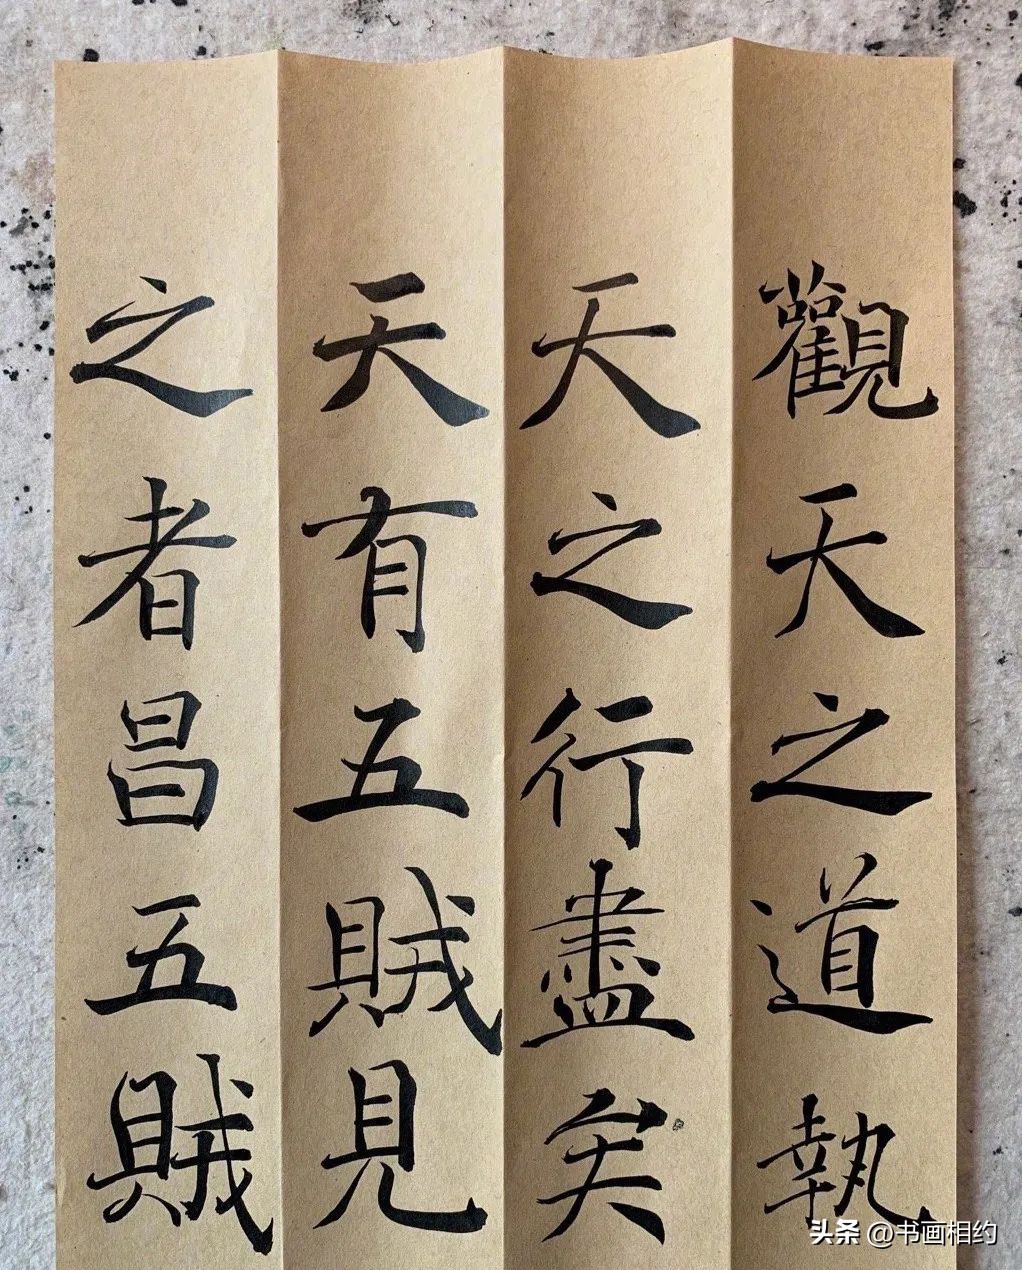 觀天之道執
天之行盡矣
天有五賊見
之者昌五賊
头条 @书画相约